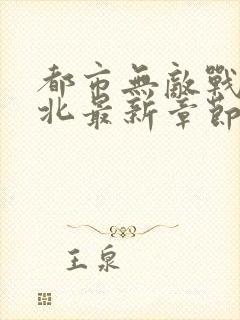 都市無敵戰
北最新章節
王泉